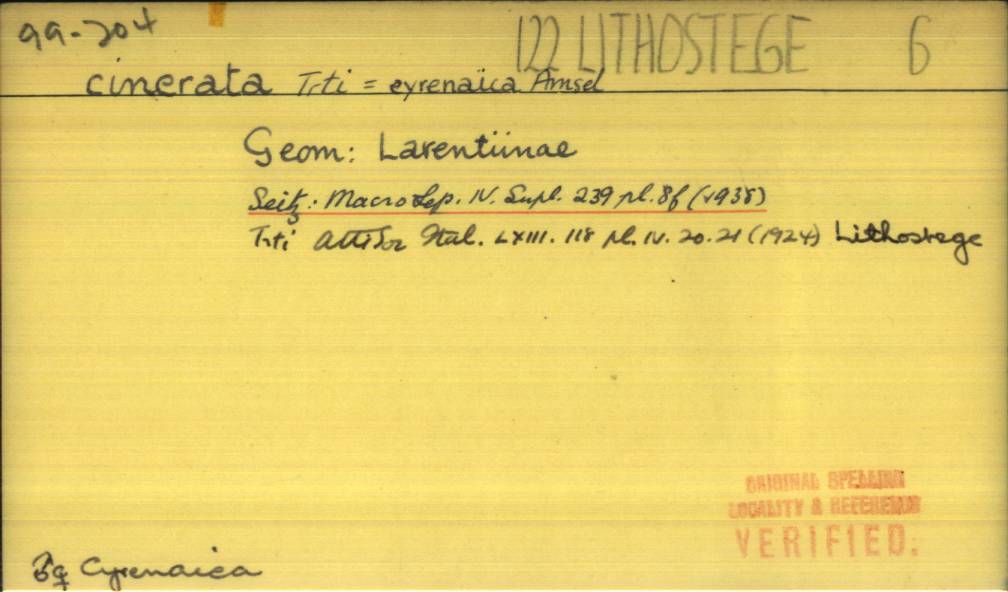 99-204
122 LITHOSTEGE 6
cinerata Trti = cyrenaïca Amsel
Geom: Larentiinae
Seitz: Macrolep. IV. Supl. 239 pl. 8f (1938)
Trti Atti Soc Ital. LXIII. 118 pl. IV. 20.21 (1924) Lithostege
ORIGINAL SPELLING
LOCALITY & REFERENCE
VERIFIED.
♂♀ Cyrenaica